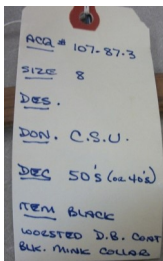 ACQ # 107.87.3
SIZE 8
DES.
DON. C.S.U.
DEC 50's (or 40's)
ITEM BLACK
WORSTED D.B. COAT
BLK. MINK COLLAR